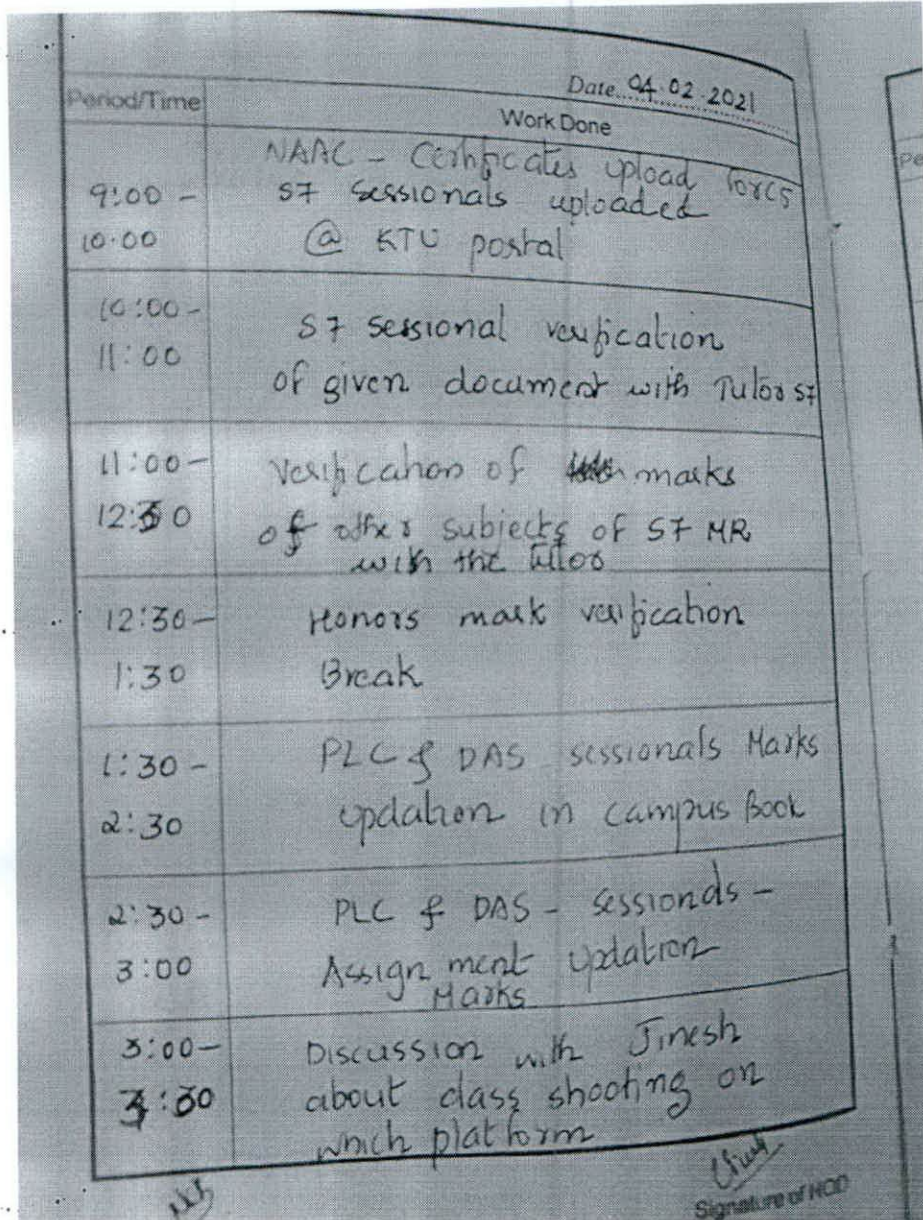 Date 04.02.2021
Period/Time
Work Done
NAAC - Certificates upload for C5
9:00 - S7 Sessionals uploaded
10.00 @ KTU postal
10:00 - S7 sessional verification
11:00 of given document with Tutor S7
11:00 - Verification of marks
12:30 of other subjects of S7 MR
with the tutor
12:30 - Honors mark verification
1:30 Break
1:30 - PLC & DAS sessionals Marks
2:30 updation in campus Book
2:30 - PLC & DAS - sessionals -
3:00 Assignment updation
Marks
3:00 - Discussion with Jinesh
:30 about class shooting on
which platform
Signature of HOD